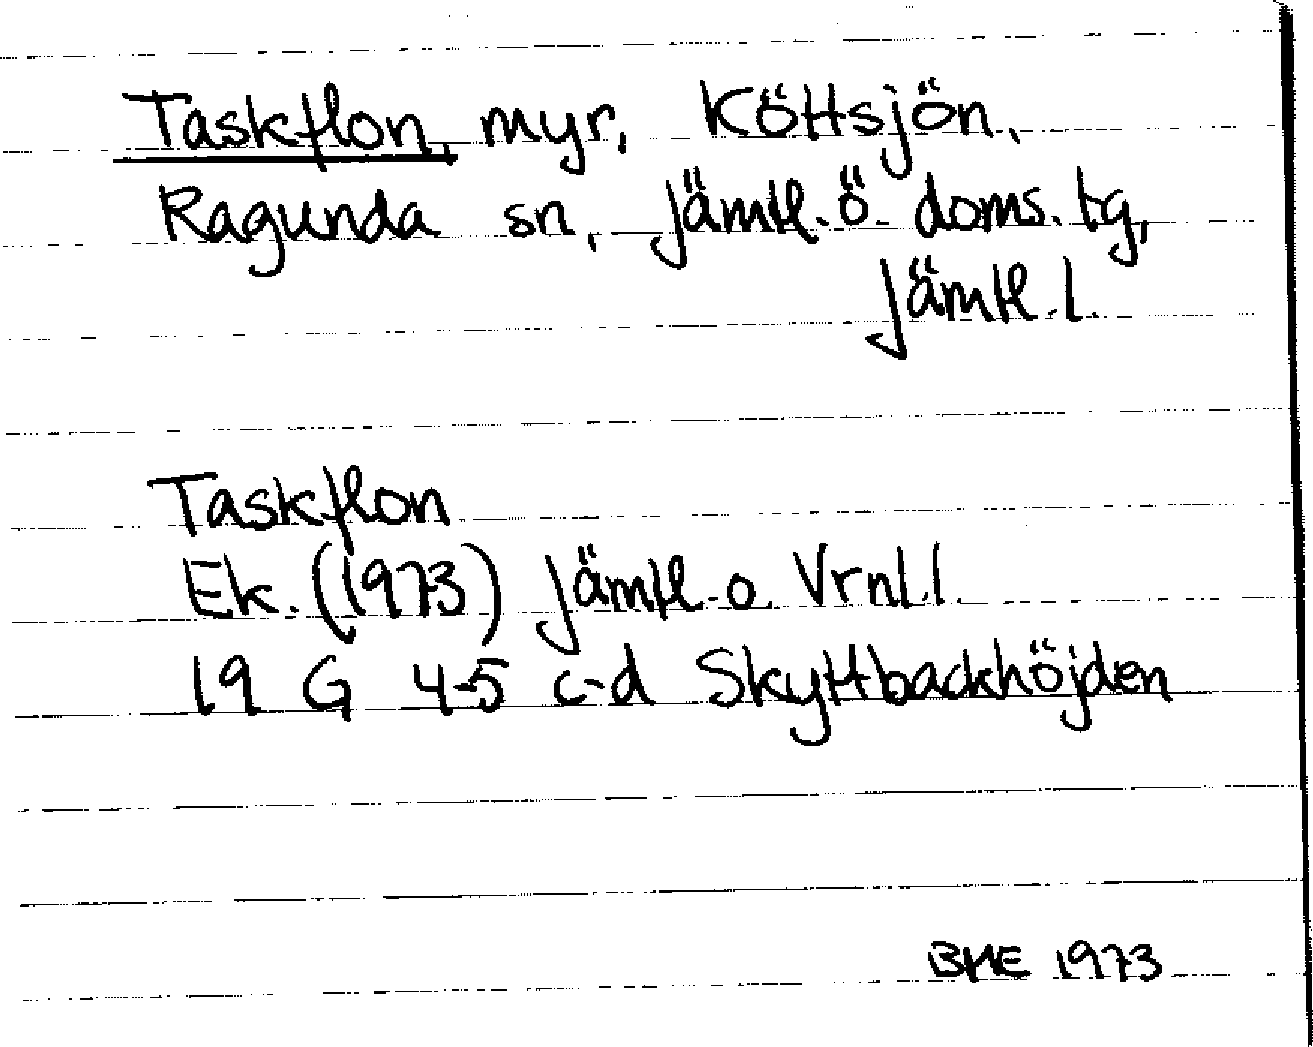 Taskflon, myr, Köttsjön,
Ragunda sn, Jämtl. ö. doms. tg,
Jämtl. l.
Taskflon
Ek. (1973) Jämtl. o. Vrnl. l.
19 G 4-5 c-d Skyttbackhöjden
BME 1973